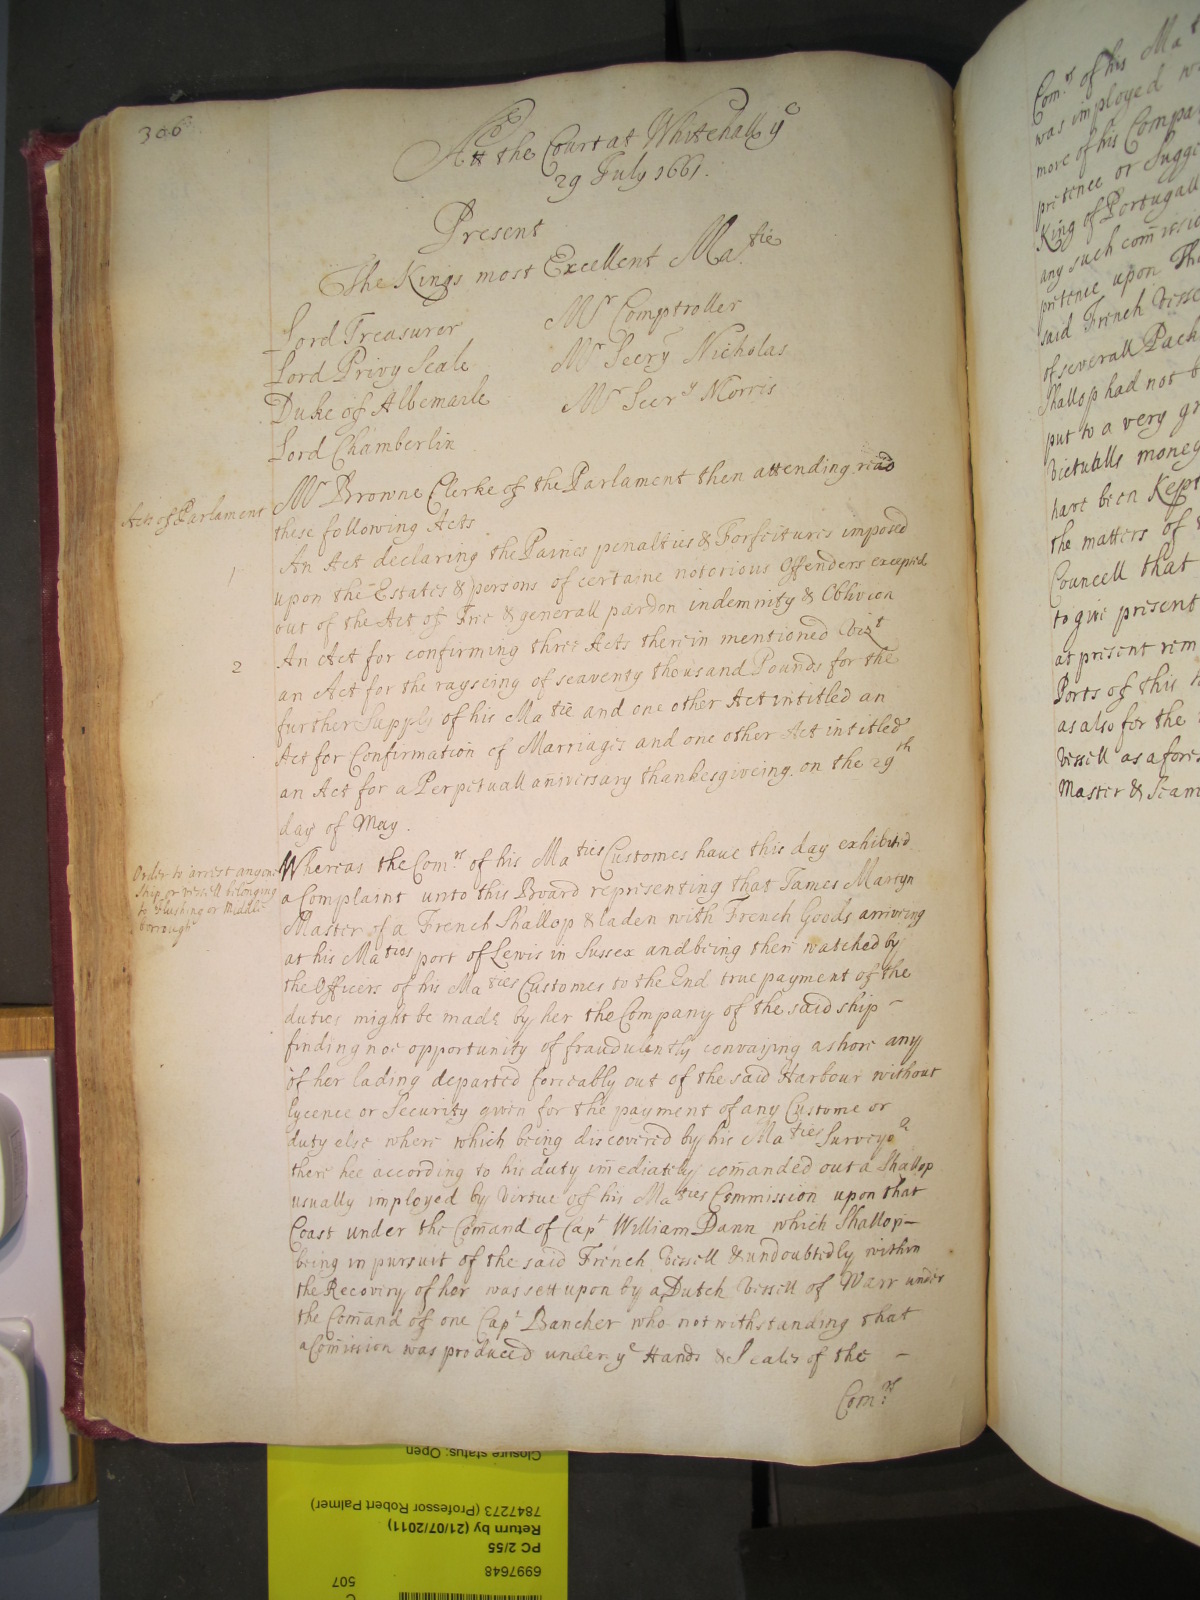 306
Att the Court at Whitehall ye
29 July 1661.
Present
The Kings most Excellent Ma.tie
Lord Treasurer
Lord Privy Seale
Duke of Albemarle
Lord Chamberlin
Mr Comptroller
Mr Secry Nicholas
Mr Secry Morris
Acts of Parlament
Mr Browne Clerke of the Parlament then attending read
these following Acts
1
An Act declaring the Paines penalties & Forfeitures imposed
upon the Estates & persons of certaine notorious Offenders excepted
out of the Act of Free & generall pardon indemnity & Oblivion
2
An Act for confirming three Acts therein mentioned Vizt
an Act for the rayseing of seaventy thousand Pounds for the
further Supply of his Matie and one other Act intitled an
Act for Confirmation of Marriages and one other Act intitled
an Act for a Perpetuall aniversary thankesgiveing on the 29th
day of May.
Order to arrest anyone
Ship or vessell belonging
to Flushing or Middle
borrough
Whereas the Comrs of his Maties Customes have this day exhibited
a Complaint unto this Board representing that James Martyn
Master of a French Shallop & laden with French Goods arriveing
at his Maties port of Lewis in Sussex and being there watched by
the Officers of his Maties Customes to the End true payment of the
duties might be made by her the Company of the said ship -
finding noe opportunity of fraudulently convaying ashore any
of her lading departed forceably out of the said Harbour without
lycence or Security given for the payment of any Custome or
duty else where which being discovered by his Maties Surveyor
there hee according to his duty im̄ediately com̄anded out a Shallop
usually imployed by Virtue of his Maties Commission upon that
Coast under the Com̄and of Capt William Dann which Shallop -
being in pursuit of the said French Vessell & undoubtedly within
the Recovery of her was sett upon by a Dutch Vessell of Warr under
the Com̄and of one Capt Bancher who notwithstanding that
a Com̄ission was produced under ye Hands & Seales of the -
Comrs
Comrs of his Mat
was imployed
more of his Compa
pretence or Sugge
King of Portugall
any such com̄issio
pretence upon Th
said French Vesse
of severall Pack
Shallop had not b
put to a very gr
Victualls money
have been Kept
the matters of
Councell that
to give present
at present rem
Ports of this
as also for the
Vessell as afores
Master & Seam
Closure status: Open
7847273 (Professor Robert Palmer)
Return by (21/07/2011)
PC 2/55
6997648
507